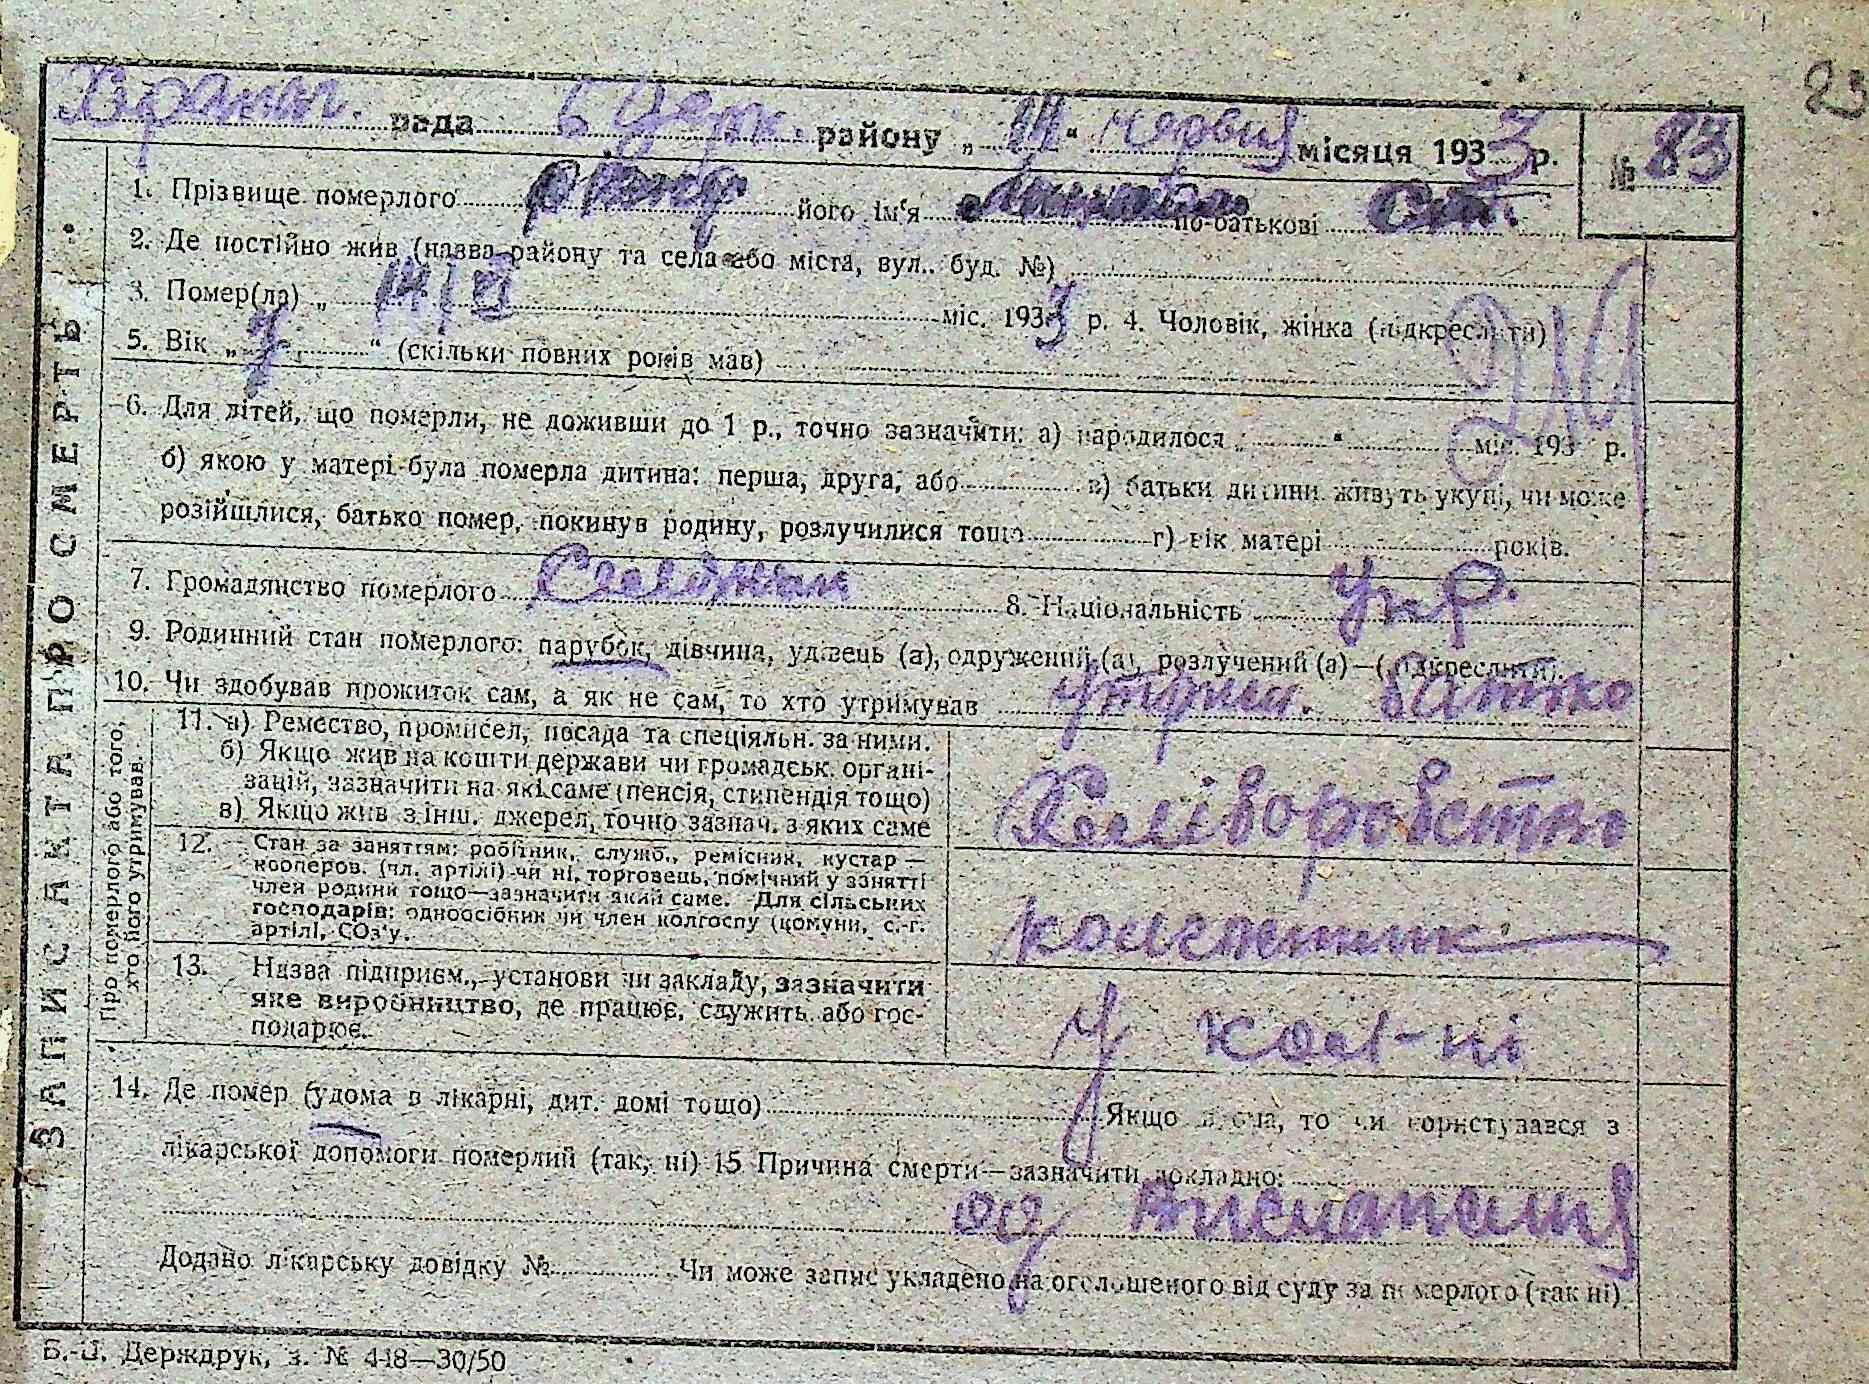 23
рада Б Церк. району „14“ червня місяця 1933 р. № 83
1. Прізвище померлого його ім'я по-батькові Ст.
2. Де постійно жив (назва району та села або міста, вул., буд. №)
3. Помер(ла) „ 14/VI міс. 1933 р. 4. Чоловік, жінка (підкреслити)
5. Вік „ 7 “ (скільки повних років мав)
6. Для дітей, що померли, не доживши до 1 р., точно зазначити: а) народилося „ “ міс. 193 р.
б) якою у матері була померла дитина: перша, друга, або в) батьки дитини живуть укупі, чи може
розійшлися, батько помер, покинув родину, розлучилися тощо г) вік матері років.
7. Громадянство померлого 8. Національність Укр.
9. Родинний стан померлого: парубок, дівчина, удівець (а), одружений (а), розлучений (а)—(підкреслити).
10. Чи здобував прожиток сам, а як не сам, то хто утримував утрим. батько
ЗАПИС АКТА ПРО СМЕРТЬ
Про померлого або того,
хто його утримував.
11. а) Ремество, промисел, посада та спеціяльн. за ними.
б) Якщо жив на кошти держави чи громадськ. органі-
зацій, зазначити на які саме (пенсія, стипендія тощо)
в) Якщо жив з інш. джерел, точно зазнач. з яких саме
Хліборобство
12. Стан за заняттям: робітник, служб., ремісник, кустар —
кооперов. (чл. артілі) чи ні, торговець, помічний у занятті
член родини тощо—зазначити який саме. Для сільських
господарів: одноосібник чи член колгоспу (комуни, с.-г.
артілі, СОЗ'у.
колгоспник
13. Назва підприєм., установи чи закладу, зазначити
яке виробництво, де працює, служить або гос-
подарює.
У кол-пі
14. Де помер (удома в лікарні, дит. домі тощо) Якщо вдома, то чи користувався з
лікарської допомоги померлий (так, ні) 15 Причина смерти—зазначити докладно:
од
Додано лікарську довідку № Чи може запис укладено на оголошеного від суду за померлого (так ні).
Держдрук, з. № 448—30/50